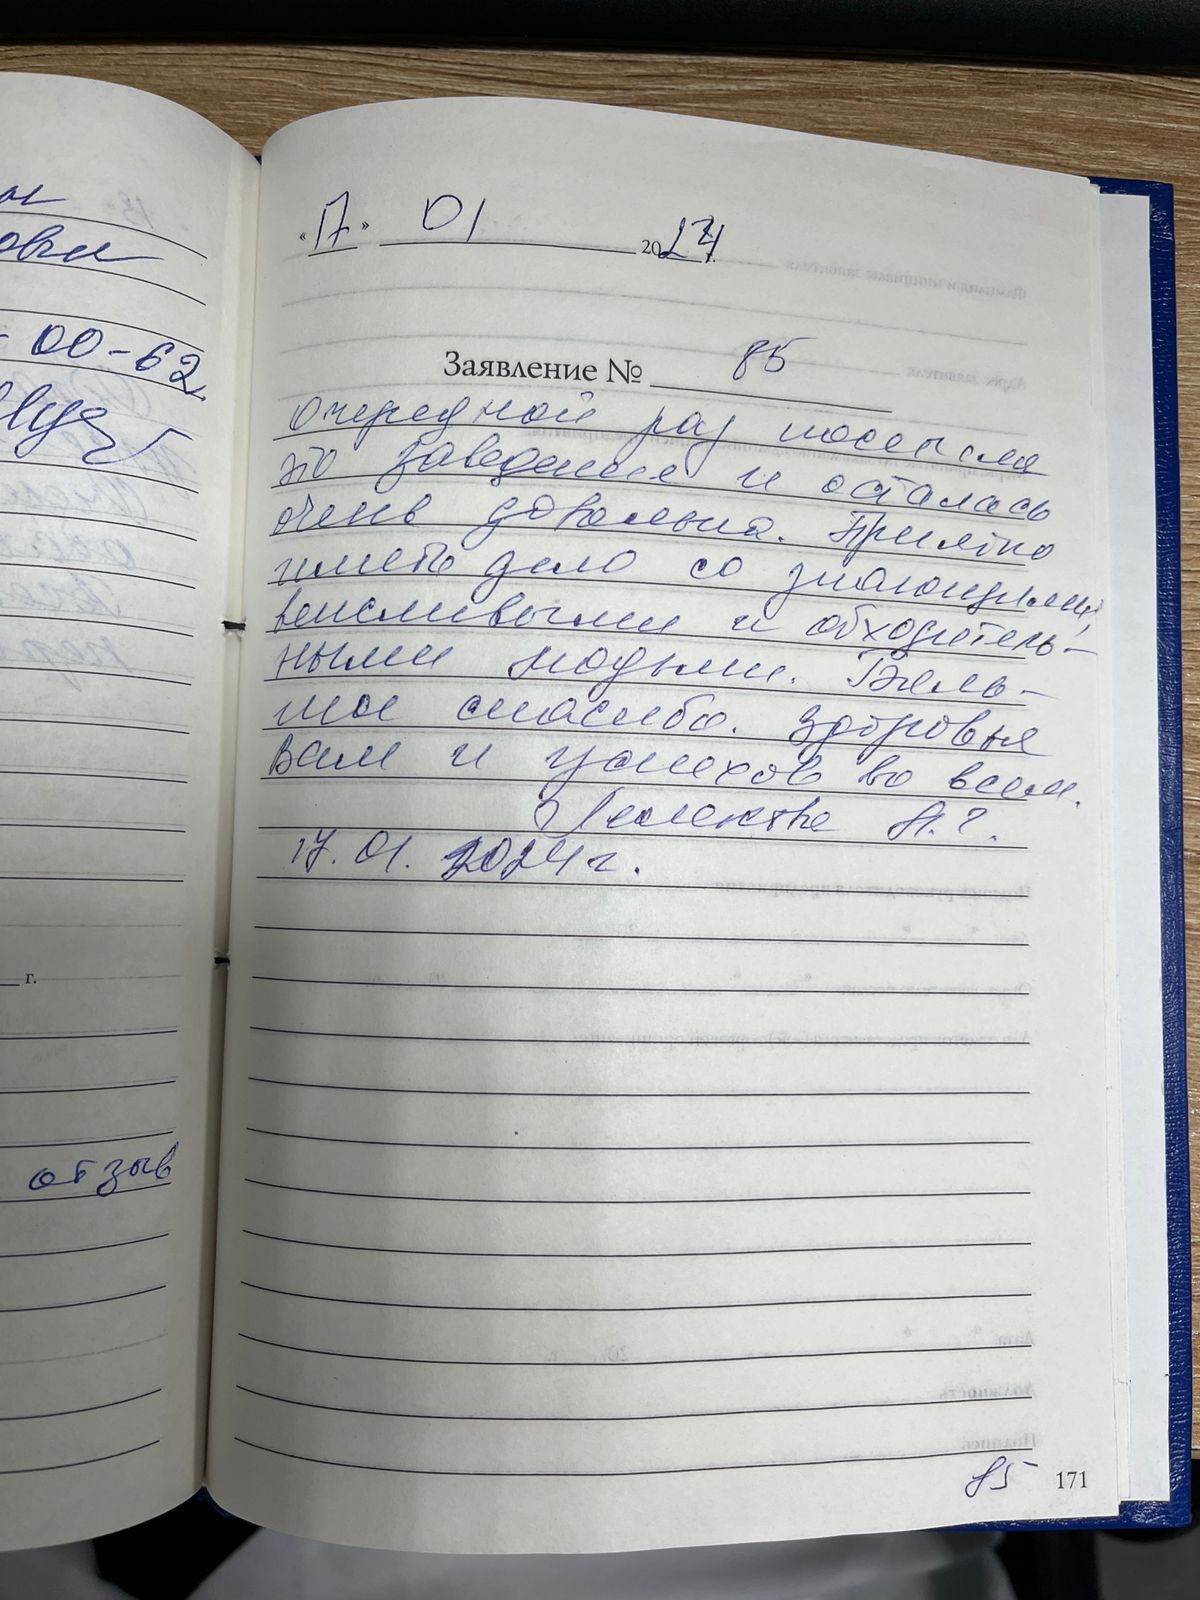 овы
00-62
г.
отзыв
«17» 01 2024 г.
Заявление № 85
Очередной раз посетила
это заведение и осталась
очень довольна. Приятно
иметь дело со знающими,
вежливыми и обходитель-
ными людьми. Боль-
шое спасибо. Здоровья
Вам и успехов во всем.
17.01.2024 г.
85
171